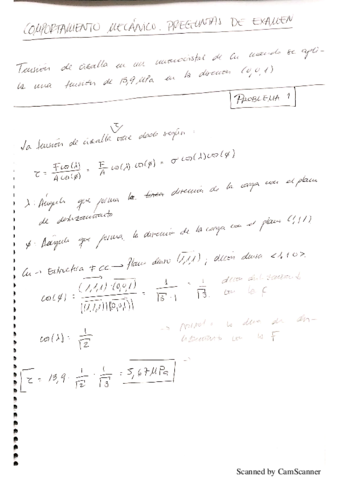 COMPORTAMIENTO MECÁNICO. PREGUNTAS DE EXAMEN
Tensión de cizalla en un monocristal de Cu cuando se apli-
ca una tensión de 13,9 MPa en la dirección (0,0,1)
PROBLEMA 1
La tensión de cizalla dado según:
τ = F cos(λ) / A cos(φ) = F/A cos(λ) cos(φ) = σ cos(λ) cos(φ)
λ: Ángulo que forma la dirección de la carga con el plano
de deslizamiento
φ: Ángulo que forma la dirección de la carga con el plano (1,1,1)
Cu → Estructura FCC → Plano denso (1,1,1), direcc densa <1,1,0>
cos(φ) = (1,1,1)·(0,0,1) / |(1,1,1)||(0,0,1)| = 1/√3·1 = 1/√3
con la F
cos(λ): 1/√2
τ = 13,9 · 1/√2 · 1/√3 = 5,67 MPa
Scanned by CamScanner